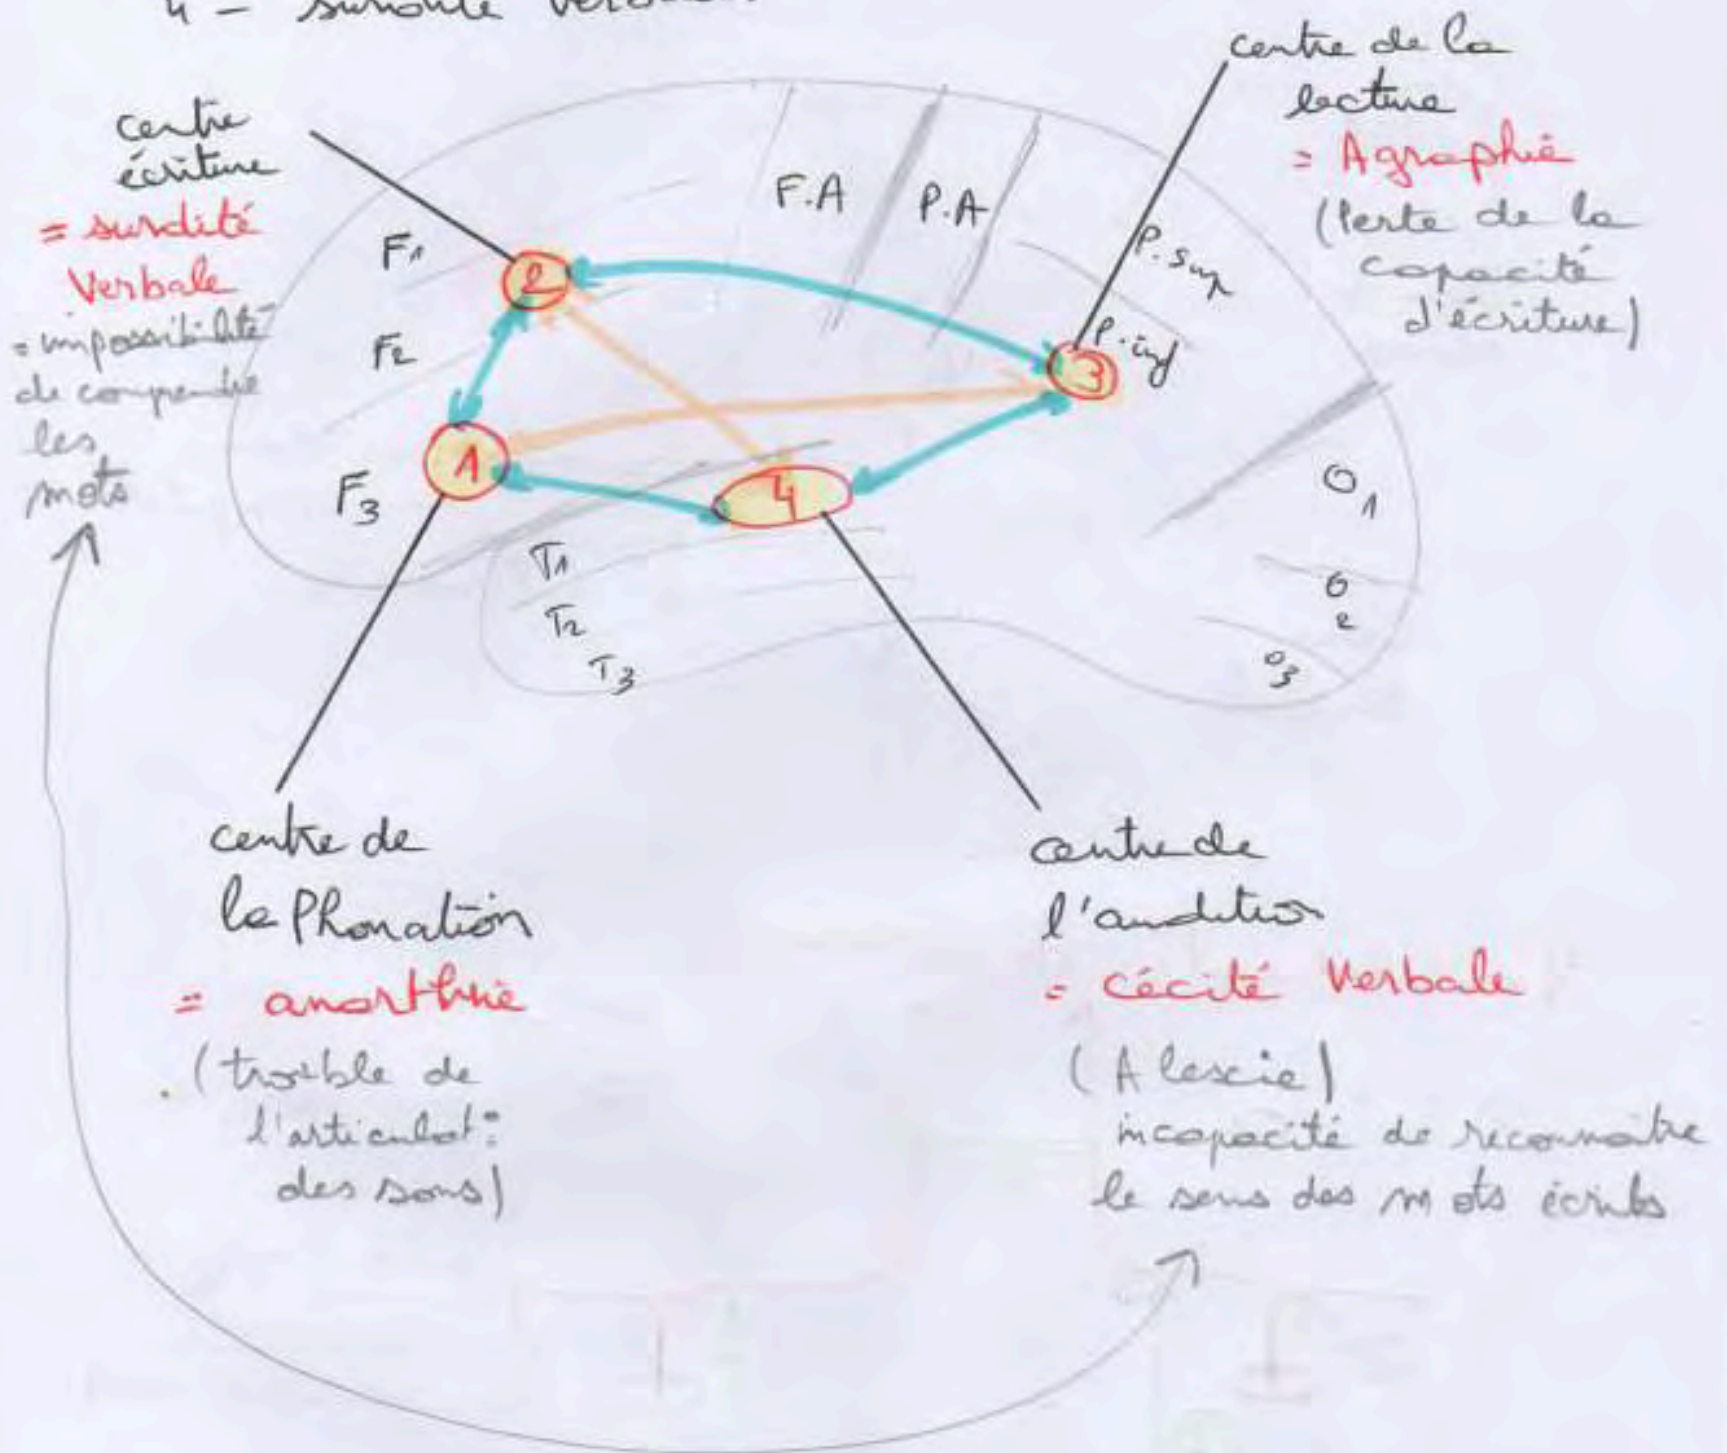 4 -
centre
écriture
= surdité
Verbale
= impossibilité
de comprendre
les
mots
centre de la
lecture
= Agraphie
(Perte de la
capacité
d'écriture)
F.A
P.A
P. sup
P. inf
F1
F2
F3
2
3
1
4
T1
T2
T3
O1
O2
O3
centre de
la Phonation
= anarthrie
(trouble de
l'articulat:
des sons)
centre de
l'audition
= cécité Verbale
(Alescie)
incapacité de reconnaitre
le sens des mots écrits